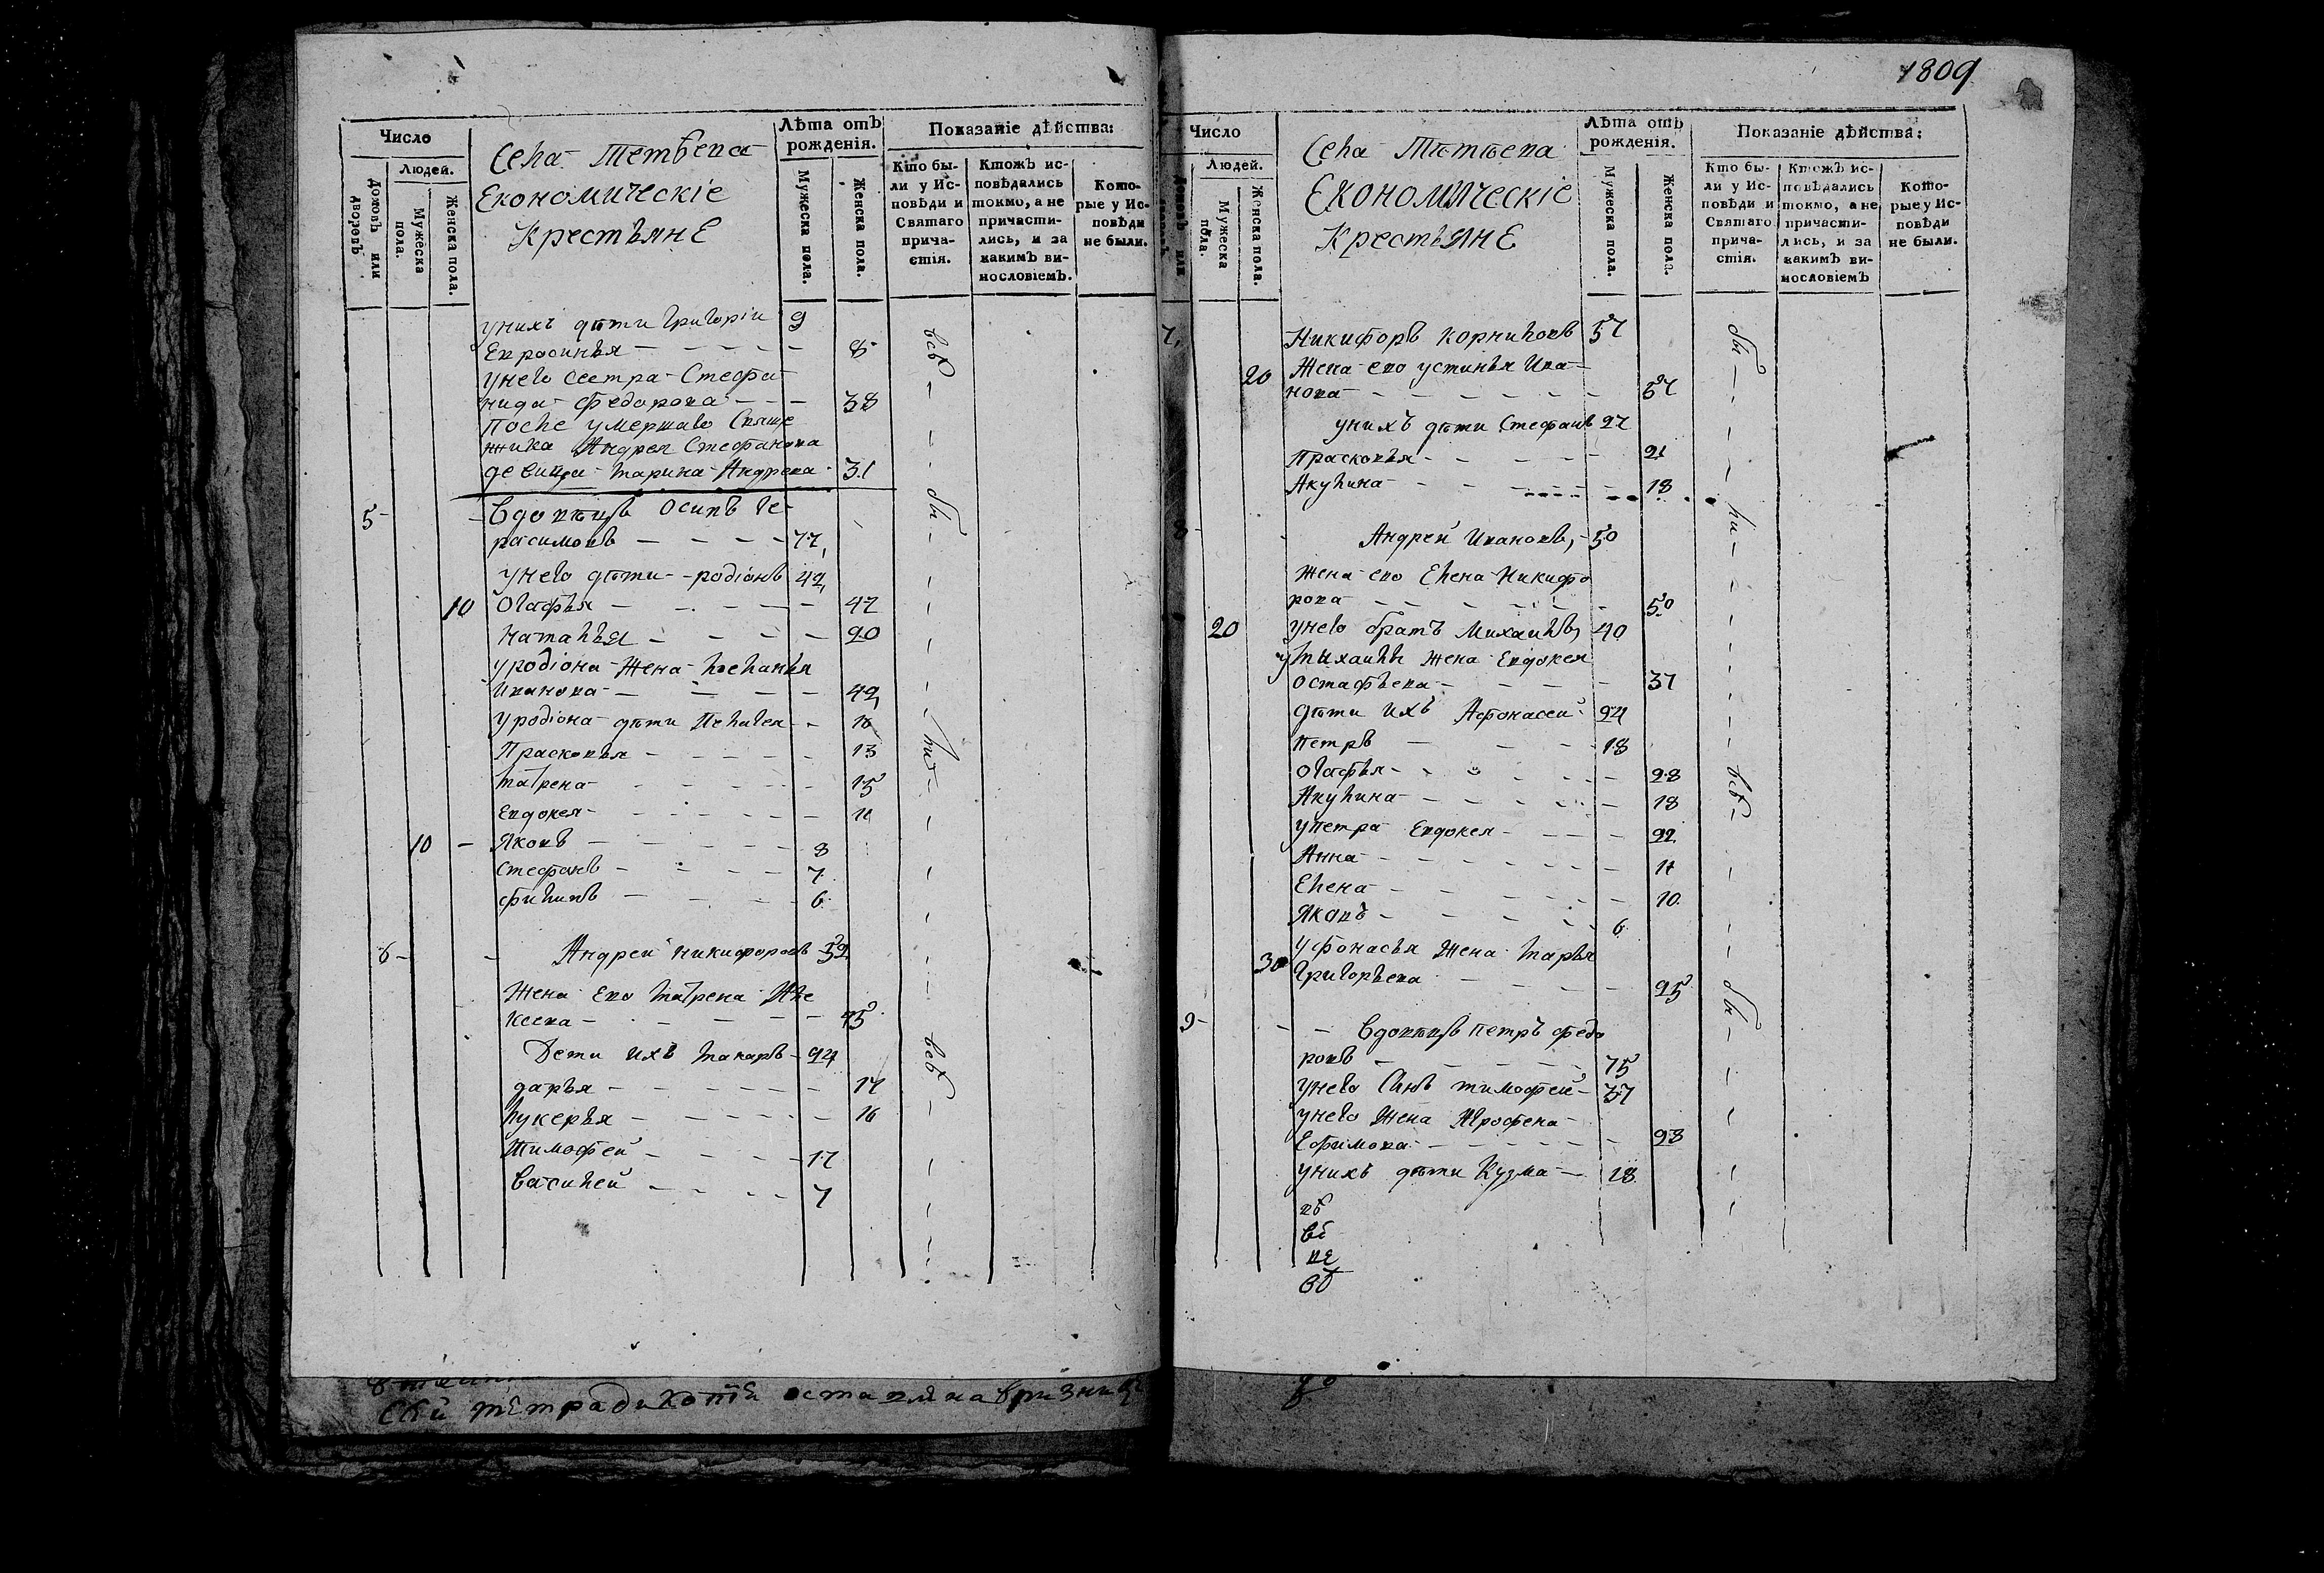 Число
Людей.
Домовъ или дворовъ
Мужеска пола.
Женска пола.
Села
Економическіе
Крестьяне
Лѣта отъ рожденія.
Мужеска пола.
Женска пола.
Показаніе дѣйства:
Кто бы-
ли у Ис-
повѣди и
Святаго
прича-
стія.
Ктожъ ис-
повѣдались
токмо, а не
причасти-
лись, и за
какимъ ви-
нословіемъ.
Кото-
рые у Ис-
повѣди
не были.
унихъ дѣти Григоріи 9
8
унего сестра Стефа
нида Федорова 38
После умершаго Свяще
нника Андрея Стефанова
девица Марина Андрева 31
5 Вдовецъ Осипъ Ге-
расимовъ 77
унего дѣти родіонъ 42
10 Огафья 47
Наталья 20
уродіона Жена
Иванова 42
уродіона дѣти Пелагея 16
Прасковья 13
Матрена 15
Евдокея 11
10 Яковъ 8
Стефанъ 7
Филипъ 6
6 Андреи Никифоровъ 52
Жена Ево Матрена Але
ксева 45
Дети ихъ Макаръ 24
дарья 17
лукерья 16
Тимофеи 17
Василей 7
всѣ
бы
ли
всѣ
1809
Число
Людей.
Мужеска пола.
Женска пола.
Села
Економическіе
Крестьяне
Лѣта отъ рожденія.
Мужеска пола.
Женска пола.
Показаніе дѣйства:
Кто бы-
ли у Ис-
повѣди и
Святаго
прича-
стія.
Ктожъ ис-
повѣдались
токмо, а не
причасти-
лись, и за
какимъ ви-
нословіемъ
Кото-
рые у Ис-
повѣди
не были.
7 Никифоръ Корниловъ 57
20 Жена ево устинья Ива-
нова 57
унихъ дѣти Стефанъ 27
Прасковья 21
Акулина 18
8 Андреи Ивановъ, 50
Жена ево Елена Никифо
рова 50
20 унего братъ Михаилъ, 40
у Михаилы Жена Евдокея
Остафьева 37
дѣти ихъ Афонасеи 24
Петръ 18
Огафья 28
Акулина 18
упетра Евдокея 22
Анна 11
Елена 10
Яковъ 6
30 уфонасья Жена Марья
Григорьева 25
9 Вдовецъ петръ федо
ровъ 75
унего Сынъ тимофеи 37
унего Жена Агрофена
Ефимова 28
унихъ дѣти Кузма 18
бы
ли
всѣ
бы
тетради копіи оставлена вризнице